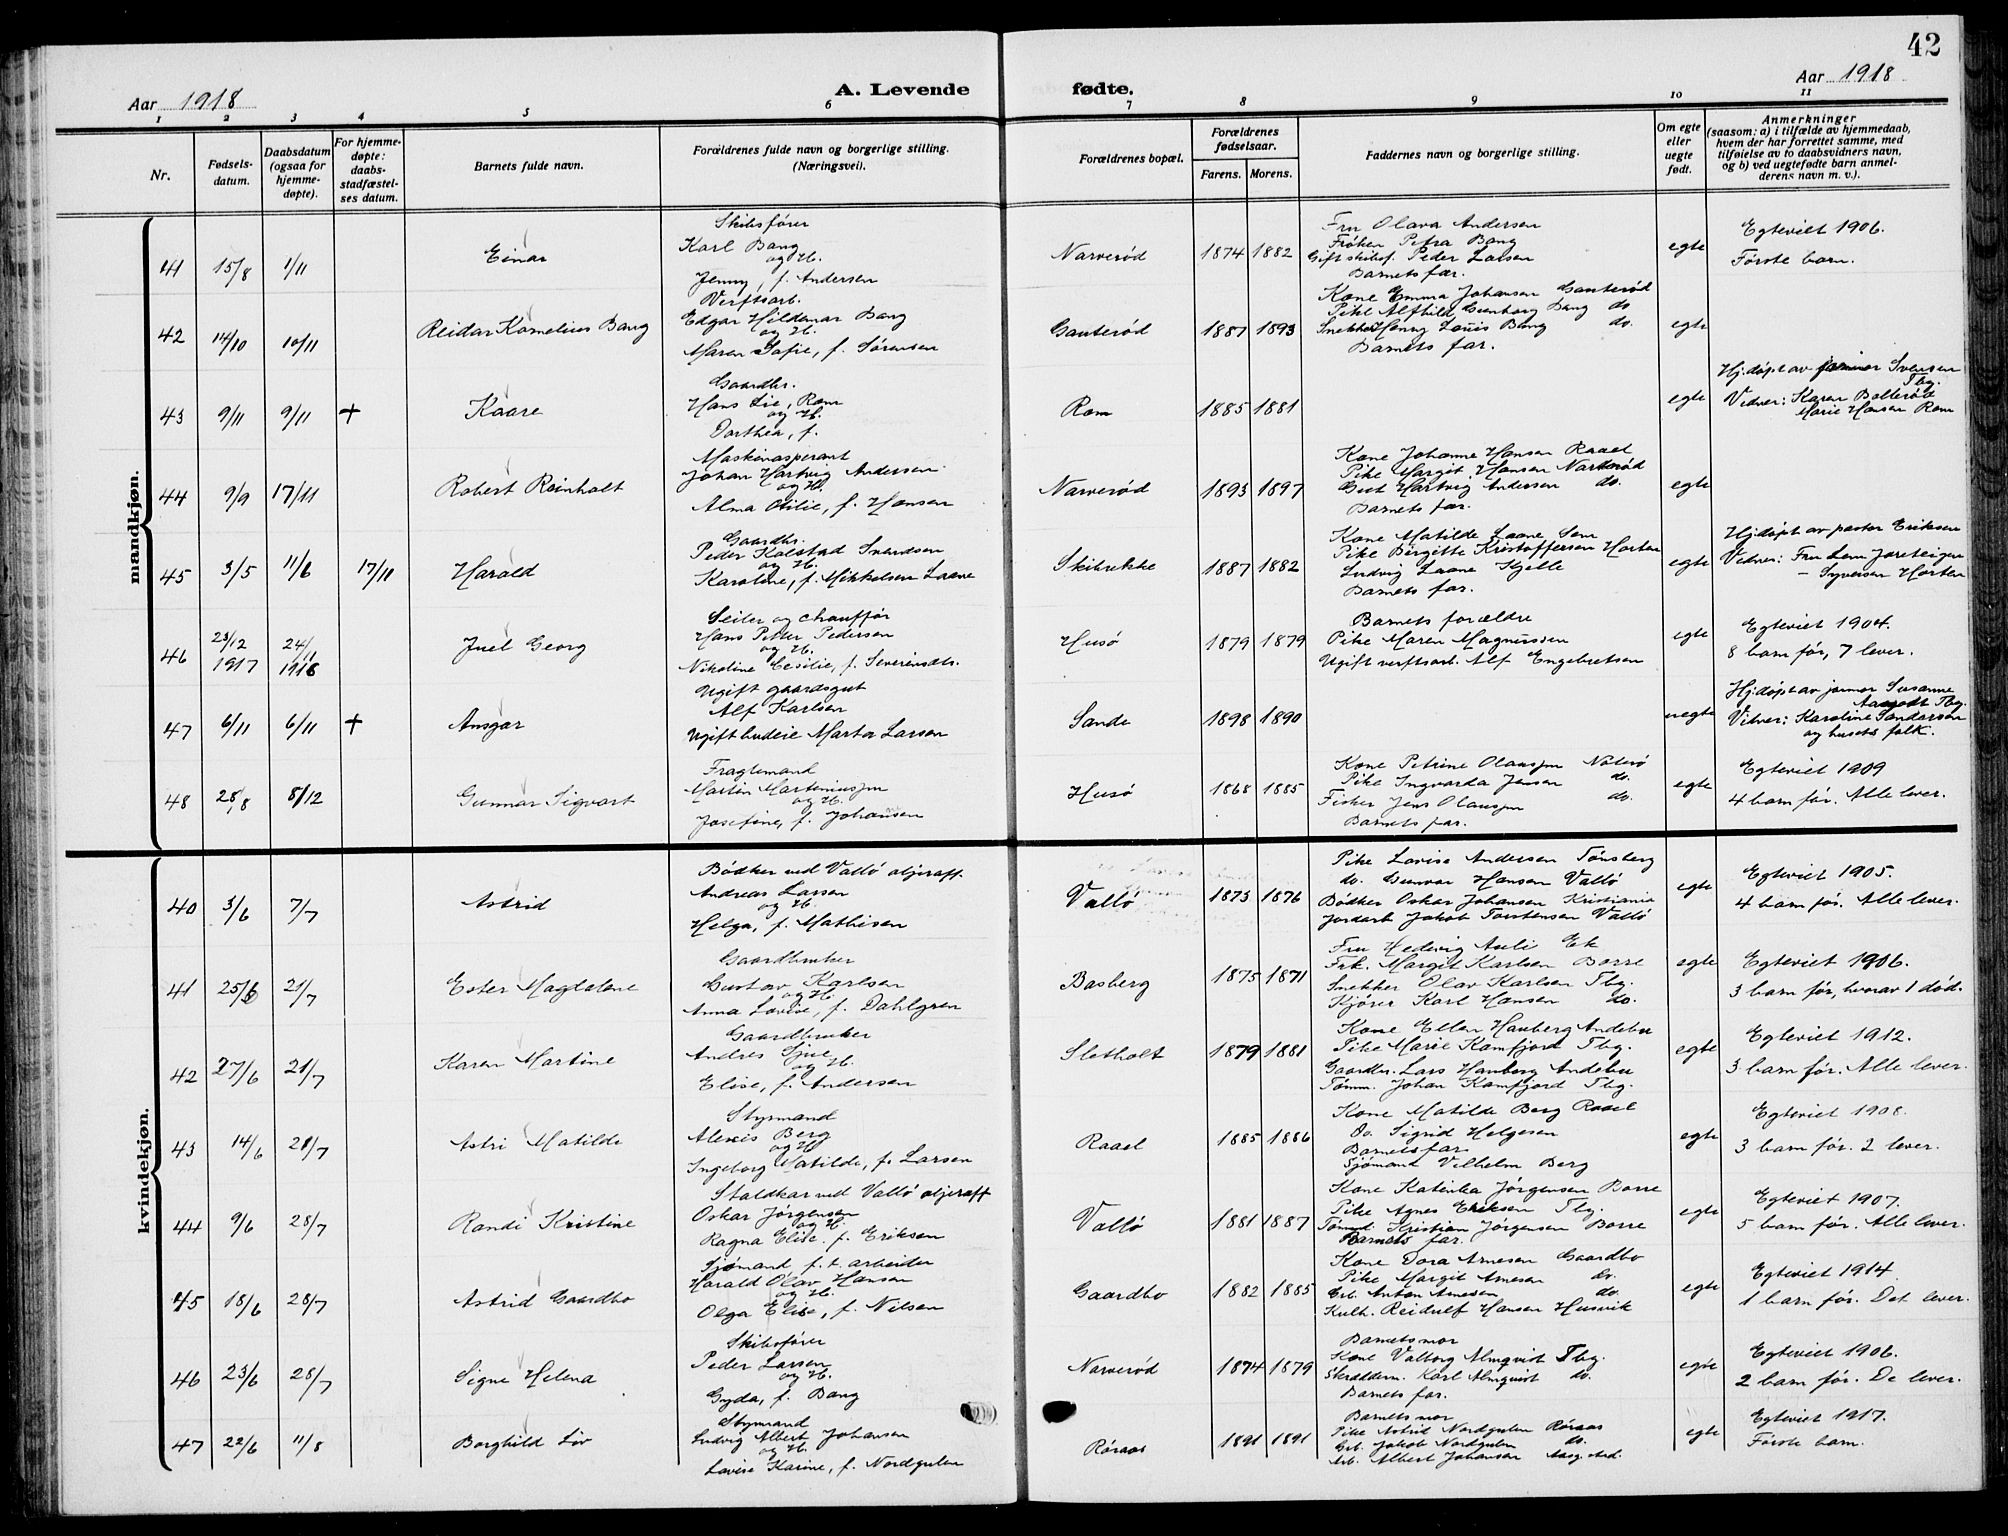 42
Aar 1918
A. Levende fødte.
Aar 1918
1 2 3 4 5 6 7 8 9 10 11
Nr.
Fødsels-
datum.
Daabsdatum
(ogsaa for
hjemme-
døpte).
For hjemme-
døpte:
daabs-
stadfæstel-
ses datum.
Barnets fulde navn.
Forældrenes fulde navn og borgerlige stilling.
(Næringsvei).
Forældrenes bopæl.
Forældrenes
fødselsaar.
Farens. Morens.
Faddernes navn og borgerlige stilling.
Om egte
eller
uegte
født.
Anmerkninger
(saasom: a) i tilfælde av hjemmedaab,
hvem der har forrettet samme, med
tilføielse av to daabsvidners navn,
og b) ved uegtefødte barn anmel-
derens navn m. v.).
mandkjøn.
41 15/8 1/11
Einar
Skibsfører
Karl Bang
og H.
Jenny, f. Andersen
Narverød
1874 1882
Fru Olava Andersen
Frøken Petra Bang
Gift skibsf. Peder Larsen
Barnets far.
egte
Egteviet 1906.
Første barn.
42 14/10 10/11
Reidar Kornelius Bang
Verftsarb.
Edgar Hildemar Bang
og H.
Maren Sofie, f. Sørensen
Gauterød
1887 1893
Kone Emma Johansen Gauterød
Pike Alfhild Bang do
Snekker Henry Louis Bang do.
Barnets far.
egte
43 9/11 9/11 +
Kaare
Gaardbr.
Hans Lie, Rom
og H.
Dorthea, f.
Rom
1885 1881
egte
Hj.døpt av jormor Svensen
Tbg.
Vidner: Karen Bollerød
Marie Hansen Rom
44 9/9 17/11
Robert Reinholt
Maskinaspirant
Johan Hartvig Andersen
og H.
Alma Otilie, f. Hansen
Narverød
1893 1897
Kone Johanne Hansen Raael
Pike Margit Hansen Narverød
Gut Hartvig Andersen do.
Barnets far.
egte
45 3/5 11/6 17/11
Harald
Gaardbr.
Peder Kolstad Svendsen
og H.
Karoline, f. Mikkelsen Laane
Skibrekke
1887 1882
Kone Matilde Laane Sem
Pike Birgitte Kristoffersen Horten
Ludvig Laane Kjelle
Barnets far.
egte
Hj.døpt av pastor Eriksen
Vidner: Fru Lem Jareteigen
— Syversen Horten
46 23/12 1917 24/11 1918
Juel Georg
Seiler og chauffør
Hans Petter Pedersen
og H.
Nikoline Cesilie, f. Severinsdt.
Husø
1879 1879
Barnets forældre
Pike Maren Magnussen
Ugift verftsarb. Alf Engebretsen
egte
Egteviet 1904.
8 barn før, 7 lever.
47 6/11 6/11 +
Ansgar
Ugift gaardsgut
Alf Karlsen
Ugift budeie Marta Larsen
Sande
1898 1890
uegte
Hj.døpt av jormor Susanne
Aasgodt Tbg.
Vidner: Karoline Sandersen
og husets folk.
48 28/8 8/12
Gunnar Sigvart
Fragtemand
Martin Martiniussen
og H.
Josefine, f. Johansen
Husø
1868 1885
Kone Petrine Olaussen Nøterø
Pike Ingvarda Jensen do.
Fisker Jens Olaussen do.
Barnets far.
egte
Egteviet 1909
4 barn før. Alle lever.
kvindekjøn.
40 3/6 7/7
Astrid
Bødker ved Vallø oljeraff.
Andreas Larsen
og H.
Helga, f. Mathisen
Vallø
1873 1876
Pike Lovise Andersen Tønsberg
do. Gunvor Hansen Vallø
Bødker Oskar Johansen Kristiania
Jordarb. Jakob Torstensen Vallø
egte
Egteviet 1905.
4 barn før. Alle lever.
41 25/6 21/7
Ester Magdalene
Gaardbruker
Gustav Karlsen
og H.
Anna Lovise, f. Dahlgren
Basberg
1875 1871
Fru Hedevig Auli Ek
Frk. Margit Karlsen Borre
Snekker Olav Karlsen Tbg.
Kjører Karl Hansen do.
egte
Egteviet 1906.
3 barn før, hvorav 1 død.
42 27/6 21/7
Karen Martine
Gaardbruker
Andres Sjue
og H.
Elise, f. Andersen
Sletholt
1879 1881
Kone Ellen Hauberg Andebu
Pike Marie Kamfjord Tbg.
Gaardbr. Lars Hauberg Andebu
Tømm. Johan Kamfjord Tbg.
egte
Egteviet 1912.
3 barn før. Alle lever.
43 14/6 21/7
Astri Matilde
Styrmand
Alexis Berg
og H.
Ingeborg Matilde, f. Larsen
Raael
1885 1886
Kone Matilde Berg Raael
Do. Sigrid Helgesen
Barnets far
Sjømand Vilhelm Berg
egte
Egteviet 1908.
3 barn før. 2 lever.
44 9/6 28/7
Randi Kristine
Staldkar ved Vallø oljeraff
Oskar Jørgensen
og H.
Ragna Elise, f. Eriksen
Vallø
1881 1887
Kone Katinka Jørgensen Borre
Pike Agnes Eriksen Tbg.
Tømmd. Kristian Jørgensen Borre
Barnets far.
egte
Egteviet 1907.
5 barn før. Alle lever.
45 18/6 28/7
Astrid Gaardbo
Sjømand f. t. arbeider
Harald Olav Hansen
og H.
Olga Elise, f. Nilsen
Gaardbo
1882 1885
Kone Dora Arnesen Gaardbo
Pike Margit Arnesen do.
Arb. Anton Arnesen do.
Kulh. Reidulf Hansen Husvik
egte
Egteviet 1914
1 barn før. Det lever.
46 23/6 28/7
Signe Helena
Skibsfører
Peder Larsen
og H.
Gyda, f. Bang
Narverød
1874 1879
Barnets mor
Kone Valborg Almqvist Tbg.
Skræddern. Karl Almqvist do.
Barnets far.
egte
Egteviet 1906.
2 barn før. De lever.
47 22/6 11/8
Borghild Liv
Styrmand
Ludvig Albert Johansen
og H.
Lovise Karine, f. Nordgulen
Røraas
1891 1891
Barnets mor
Pike Astrid Nordgulen Røraas
Arb. Jakob Nordgulen do.
Arb. Albert Johansen
egte
Egteviet 1917.
Første barn.